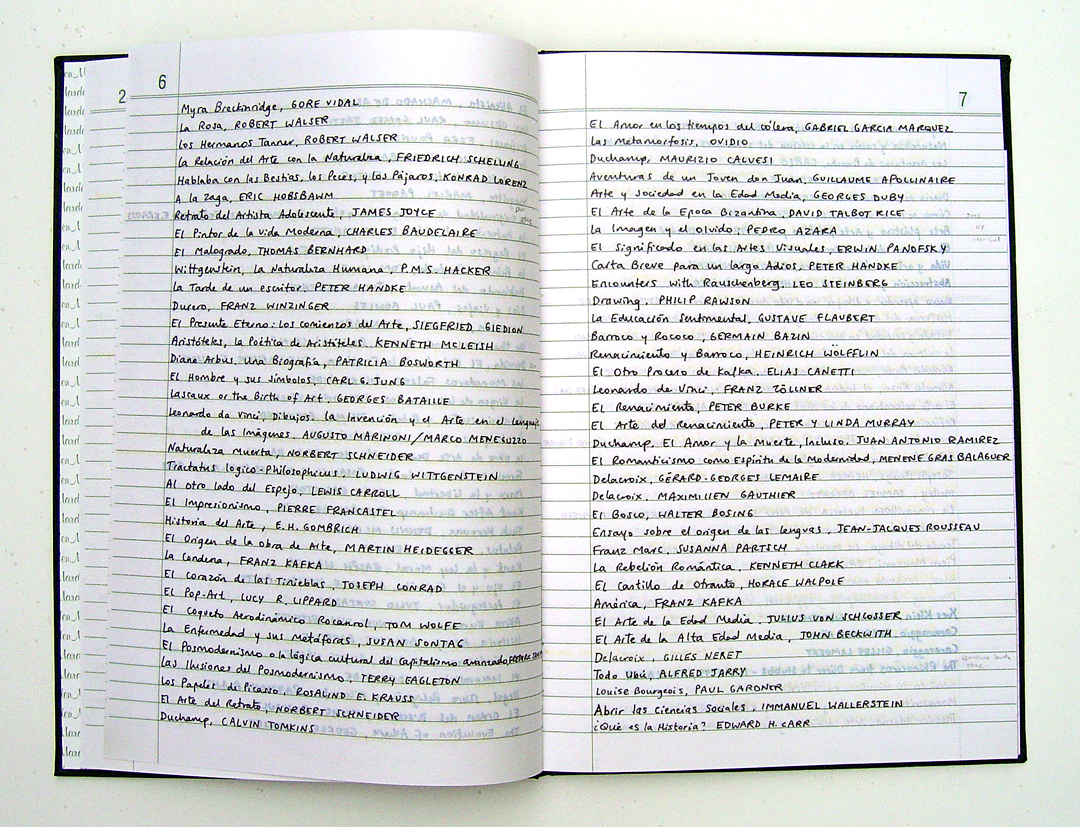 6
2
Myra Breckinridge, GORE VIDAL
La Rosa, ROBERT WALSER
Los Hermanos Tanner, ROBERT WALSER
La Relación del Arte con la Naturaleza, FRIEDRICH SCHELLING
Hablaba con las Bestias, los Peces, y los Pájaros, KONRAD LORENZ
A la Zaga, ERIC HOBSBAWM
Retrato del Artista Adolescente, JAMES JOYCE
El Pintor de la Vida Moderna, CHARLES BAUDELAIRE
El Malogrado, THOMAS BERNHARD
Wittgenstein, La Naturaliza Humana, P.M.S. HACKER
La Tarde de un escritor, PETER HANDKE
Durero, FRANZ WINZINGER
El Presente Eterno: Los comienzos del Arte, SIEGFRIED GIEDION
Aristóteles, la Poética de Aristóteles. KENNETH MCLEISH
Diane Arbus. Una Biografía, PATRICIA BOSWORTH
El Hombre y sus símbolos, CARL G. JUNG
Lascaux or the Birth of Art, GEORGES BATAILLE
Leonardo da Vinci, Dibujos. La Invención y el Arte en el Lenguaje
de las Imágenes. AUGUSTO MARINONI/MARCO MENEGUZZO
Naturaleza Muerta, NORBERT SCHNEIDER
Tractatus logico-Philosophicus, LUDWIG WITTGENSTEIN
Al otro lado del Espejo, LEWIS CARROLL
El Impresionismo, PIERRE FRANCASTEL
Historia del Arte, E.H. GOMBRICH
El Origen de la obra de Arte, MARTIN HEIDEGGER
La Condena, FRANZ KAFKA
El Corazón de las Tinieblas. JOSEPH CONRAD
El Pop-Art, LUCY R. LIPPARD
El Coqueto Aerodinámico Rocanrol, TOM WOLFE
La Enfermedad y sus metáforas, SUSAN SONTAG
El Posmodernismo o la lógica cultural del Capitalismo avanzado,
Las Ilusiones del Posmodernismo, TERRY EAGLETON
Los Papeles de Picasso. ROSALIND E. KRAUSS
El Arte del Retrato, NORBERT SCHNEIDER
Duchamp, CALVIN TOMKINS
7
El Amor en los tiempos del cólera, GABRIEL GARCIA MARQUEZ
Las Metamorfosis, OVIDIO
Duchamp, MAURIZIO CALVESI
Aventuras de un Joven don Juan, GUILLAUME APOLLINAIRE
Arte y Sociedad en la Edad Media, GEORGES DUBY
El Arte de la Epoca Bizantina, DAVID TALBOT RICE
La Imagen y el olvido, PEDRO AZARA
El Significado en las Artes Visuales, ERWIN PANOFSKY
Carta Breve para un largo Adios, PETER HANDKE
Encounters with Rauschenberg. LEO STEINBERG
Drawing, PHILIP RAWSON
La Educación Sentimental, GUSTAVE FLAUBERT
Barroco y Rococo, GERMAIN BAZIN
Renacimiento y Barroco, HEINRICH WÖLFFLIN
El Otro Proceso de Kafka. ELIAS CANETTI
Leonardo de Vinci, FRANZ ZÖLLNER
El Renacimiento, PETER BURKE
El Arte del Renacimiento, PETER Y LINDA MURRAY
Duchamp, El Amor y la Muerte, Incluso. JUAN ANTONIO RAMIREZ
El Romanticismo como Espíritu de la Modernidad, MENENE GRAS BALAGUER
Delacroix, GÉRARD-GEORGES LEMAIRE
Delacroix. MAXIMILIEN GAUTHIER
El Bosco, WALTER BOSING
Ensayo sobre el origen de las lenguas, JEAN-JACQUES ROUSSEAU
Franz Marc. SUSANNA PARTSCH
La Rebelión Romántica, KENNETH CLARK
El Castillo de Otranto, HORACE WALPOLE
América, FRANZ KAFKA
El Arte de la Edad Media, JULIUS VON SCHLOSSER
El Arte de la Alta Edad Media, JOHN BECKWITH
Delacroix, GILLES NERET
Todo Ubú, ALFRED JARRY
Louise Bourgeois, PAUL GARDNER
Abrir las Ciencias Sociales, IMMANUEL WALLERSTEIN
¿Qué es la Historia? EDWARD H. CARR